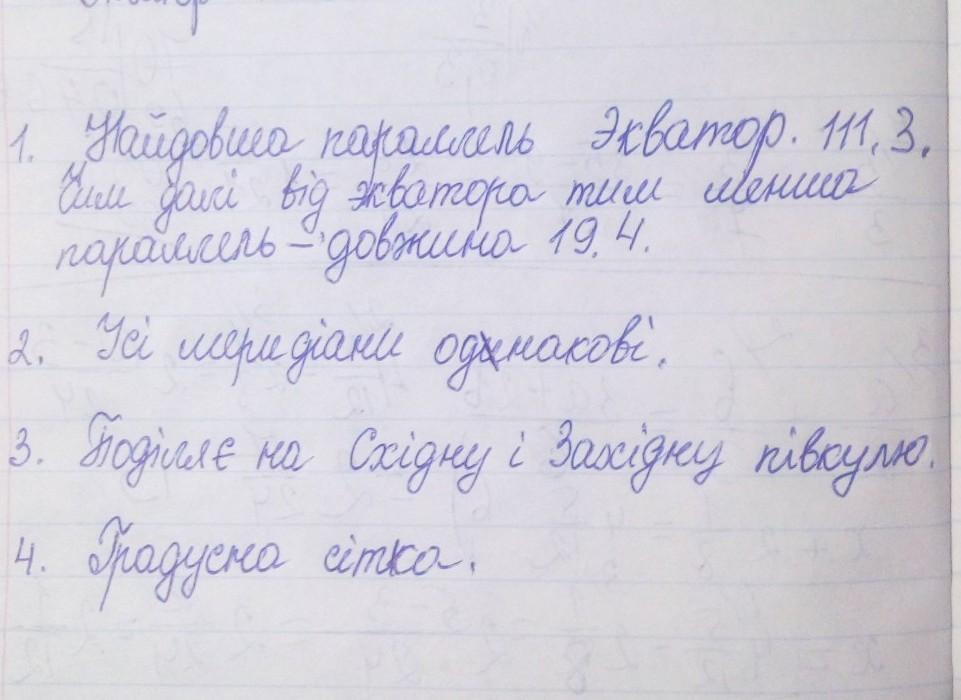 1. Найдовша параллель Экватор. 111.3.
Чим далі від экватора тим менша
параллель – довжина 19.4.
2. Усі меридіани одинакові.
3. Поділяє на Східну і Західну півкулю.
4. Градусна сітка.